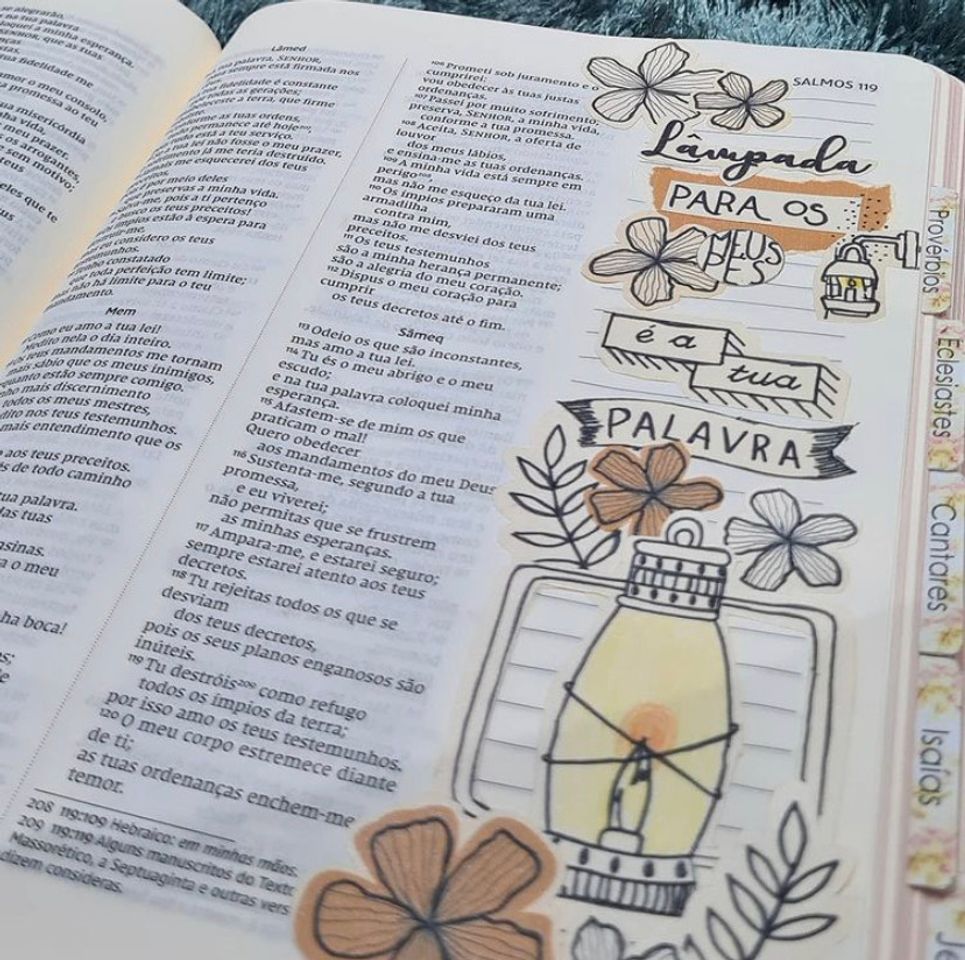 se alegrarão.
na tua palavra
loquei a minha esperança.
SENHOR, que as tuas
tua fidelidade me
mor o meu consolo,
a promessa ao teu
ua misericórdia
ha vida,
meu prazer.
os arrogantes,
sem motivo;
teus
eles que te
Lâmed
palavra, SENHOR,
para sempre está firmada nos
fidelidade é constante
todas as gerações;
a terra, que firme
as tuas ordens,
permanece até hoje
tudo está a teu serviço.
tua lei não fosse o meu prazer,
já me teria destruído.
me esquecerei dos teus
é por meio deles
preservas a minha vida.
me, pois a ti pertenço
busco os teus preceitos!
ímpios estão à espera para
eu considero os teus
Tenho constatado
que toda perfeição tem limite;
não há limite para o teu
mandamento.
Mem
Como eu amo a tua lei!
Medito nela o dia inteiro.
teus mandamentos me tornam
mais sábio que os meus inimigos,
quanto estão sempre comigo.
mais discernimento
todos os meus mestres,
dito nos teus testemunhos.
mais entendimento que os
aos teus preceitos.
de todo caminho
tua palavra.
das tuas
ensinas.
a o meu
minha boca!
106 Prometi sob juramento e o
cumprirei:
vou obedecer às tuas justas
ordenanças.
107 Passei por muito sofrimento;
preserva, SENHOR, a minha vida,
conforme a tua promessa.
108 Aceita, SENHOR, a oferta de
louvor
dos meus lábios,
e ensina-me as tuas ordenanças.
109 A minha vida está sempre em
perigo208,
mas não me esqueço da tua lei.
110 Os ímpios prepararam uma
armadilha
contra mim,
mas não me desviei dos teus
preceitos.
111 Os teus testemunhos
são a minha herança permanente;
são a alegria do meu coração.
112 Dispus o meu coração para
cumprir
os teus decretos até o fim.
Sâmeq
113 Odeio os que são inconstantes,
mas amo a tua lei.
114 Tu és o meu abrigo e o meu
escudo;
e na tua palavra coloquei minha
esperança.
115 Afastem-se de mim os que
praticam o mal!
Quero obedecer
aos mandamentos do meu Deus
116 Sustenta-me, segundo a tua
promessa,
e eu viverei;
não permitas que se frustrem
as minhas esperanças.
117 Ampara-me, e estarei seguro;
sempre estarei atento aos teus
decretos.
118 Tu rejeitas todos os que se
desviam
dos teus decretos,
pois os seus planos enganosos são
inúteis.
119 Tu destróis209 como refugo
todos os ímpios da terra;
por isso amo os teus testemunhos.
120 O meu corpo estremece diante
de ti;
as tuas ordenanças enchem-me
temor.
208 119:109 Hebraico: em minhas mãos.
209 119:119 Alguns manuscritos do Texto
Massorético, a Septuaginta e outras vers
dizem consideras.
SALMOS 119
Lâmpada
PARA OS
MEUS
PÉS
é a
tua
PALAVRA
Provérbios
Eclesiastes
Cantares
Isaías
Je